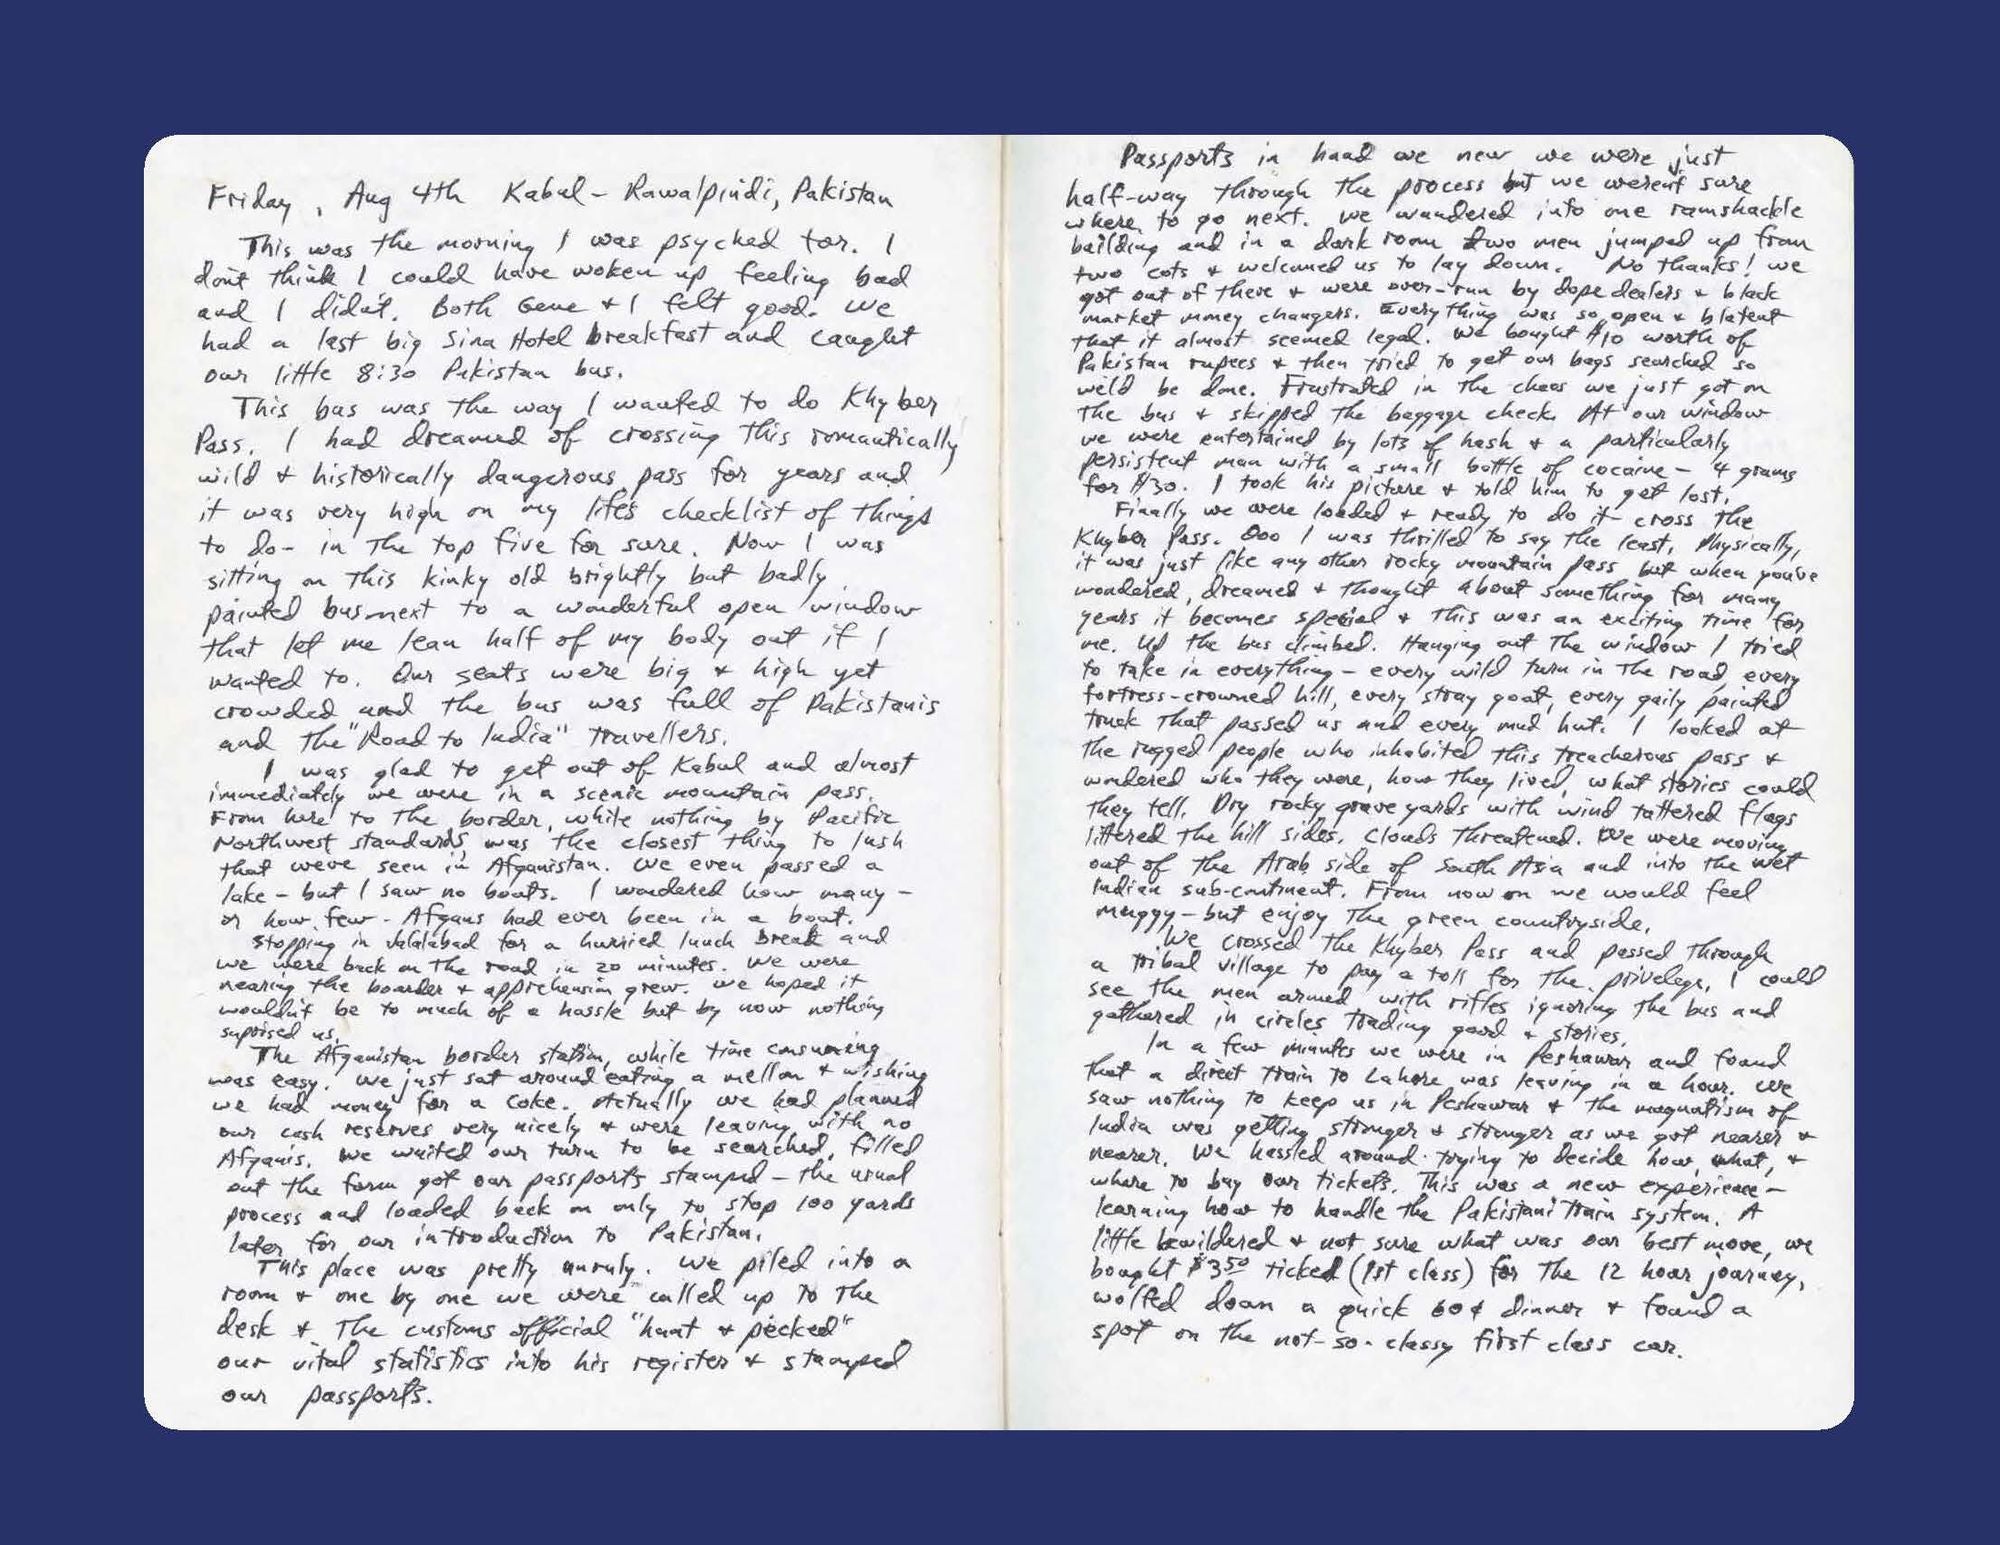 Friday, Aug 4th Kabul - Rawalpindi, Pakistan
This was the morning I was psyched for. I
don't think I could have woken up feeling bad
and I didn't. Both Gene + I felt good. We
had a last big Sina Hotel breakfast and caught
our little 8:30 Pakistan bus.
This bus was the way I wanted to do Khyber
Pass. I had dreamed of crossing this romantically
wild + historically dangerous pass for years and
it was very high on my life's checklist of things
to do - in the top five for sure. Now I was
sitting on this kinky old brightly but badly
painted bus next to a wonderful open window
that let me lean half of my body out if I
wanted to. Our seats were big + high yet
crowded and the bus was full of Pakistanis
and the "Road to India" travellers.
I was glad to get out of Kabul and almost
immediately we were in a scenic mountain pass.
From here to the border, while nothing by Pacific
Northwest standards, was the closest thing to lush
that weve seen in Afganistan. We even passed a
lake - but I saw no boats. I wondered how many -
or how few - Afgans had ever been in a boat.
Stopping in Jalalabad for a hurried lunch break and
we were back on the road in 20 minutes. We were
nearing the boarder + apprehension grew. We hoped it
wouldn't be to much of a hassle but by now nothing
suprised us.
The Afganistan border station, while time consuming
was easy. We just sat around eating a mellon + wishing
we had money for a Coke. Actually we had planned
our cash reserves very nicely + were leaving with no
Afganis. We waited our turn to be searched, filled
out the form got our passports stamped - the usual
process and loaded back on only to stop 100 yards
later for our introduction to Pakistan.
This place was pretty unruly. We piled into a
room + one by one we were called up to the
desk + the customs official "hunt + pecked"
our vital statistics into his register + stamped
our passports.
Passports in hand we new we were just
half-way through the process but we weren't sure
where to go next. We wandered into one ramshackle
building and in a dark room two men jumped up from
two cots + welcomed us to lay down. No thanks! We
got out of there + were over-run by dope dealers + black
market money changers. Everything was so open + blatent
that it almost seemed legal. We bought $10 worth of
Pakistan rupees + then tried to get our bags searched so
we'ld be done. Frustrated in the chaos we just got on
the bus + skipped the baggage check. At our window
we were entertained by lots of hash + a particularly
persistent man with a small bottle of cocaine - 4 grams
for $30. I took his picture + told him to get lost.
Finally we were loaded + ready to do it - cross the
Khyber Pass. Ooo I was thrilled to say the least. Physically,
it was just like any other rocky mountain pass but when you've
wondered, dreamed + thought about something for many
years it becomes special + this was an exciting time for
me. Up the bus climbed. Hanging out the window I tried
to take in everything - every wild turn in the road every
fortress-crowned hill, every stray goat, every gaily painted
truck that passed us and every mud hut. I looked at
the rugged people who inhabited this treacherous pass +
wondered who they were, how they lived, what stories could
they tell. Dry rocky graveyards with wind tattered flags
littered the hill sides. Clouds threatened. We were moving
out of the Arab side of South Asia and into the wet
Indian sub-continent. From now on we would feel
muggy - but enjoy the green countryside.
We crossed the Khyber Pass and passed through
a tribal village to pay a toll for the privelege. I could
see the men armed with rifles ignoring the bus and
gathered in circles trading good + stories.
In a few minutes we were in Peshawar and found
that a direct train to Lahore was leaving in a hour. We
saw nothing to keep us in Peshawar + the magnatism of
India was getting stronger + stronger as we got nearer +
nearer. We hassled around trying to decide how, what, +
where to buy our tickets. This was a new experience -
learning how to handle the Pakistani Train system. A
little bewildered + not sure what was our best move, we
bought $3.50 ticked (1st class) for the 12 hour journey,
wolfed down a quick 60¢ dinner + found a
spot on the not-so-classy first class car.